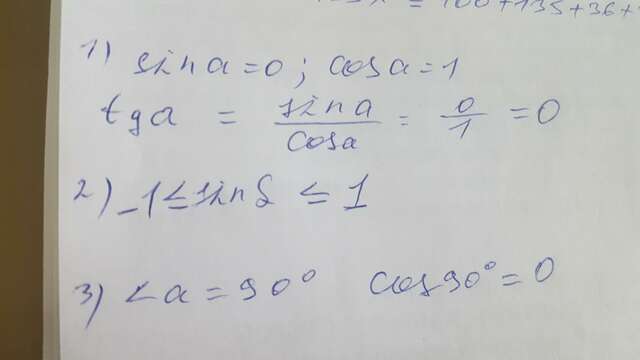 = 100 + 135 + 36 +
1) sina = 0; cosa = 1
tga = sina/cosa = 0/1 = 0
2) -1 ≤ sin2 ≤ 1
3) ∠a = 90° cos90° = 0